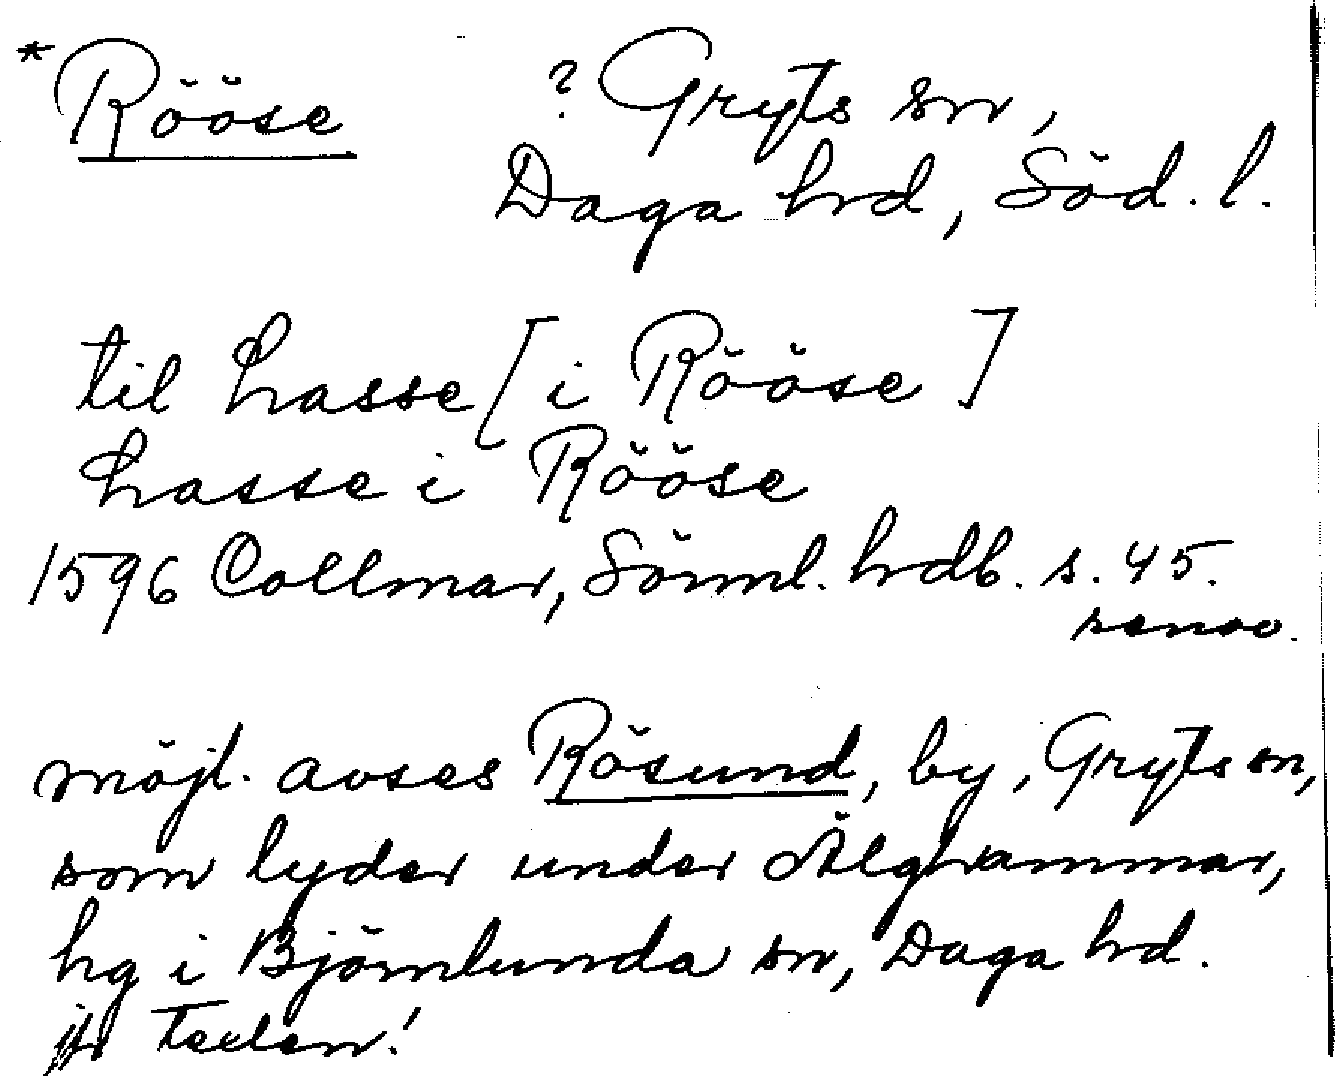 *Rööse ? Gryts sn,
Daga hrd, Söd. l.
til hasse [i Rööse]
hasse i Rööse
1596 Collmar, Sörml. hrdb. s. 45.
möjl. avses Rösund, by, Gryts sn,
som lyder under Älghammar,
hg i Björnlunda sn, Daga hrd.
jfr Texten!